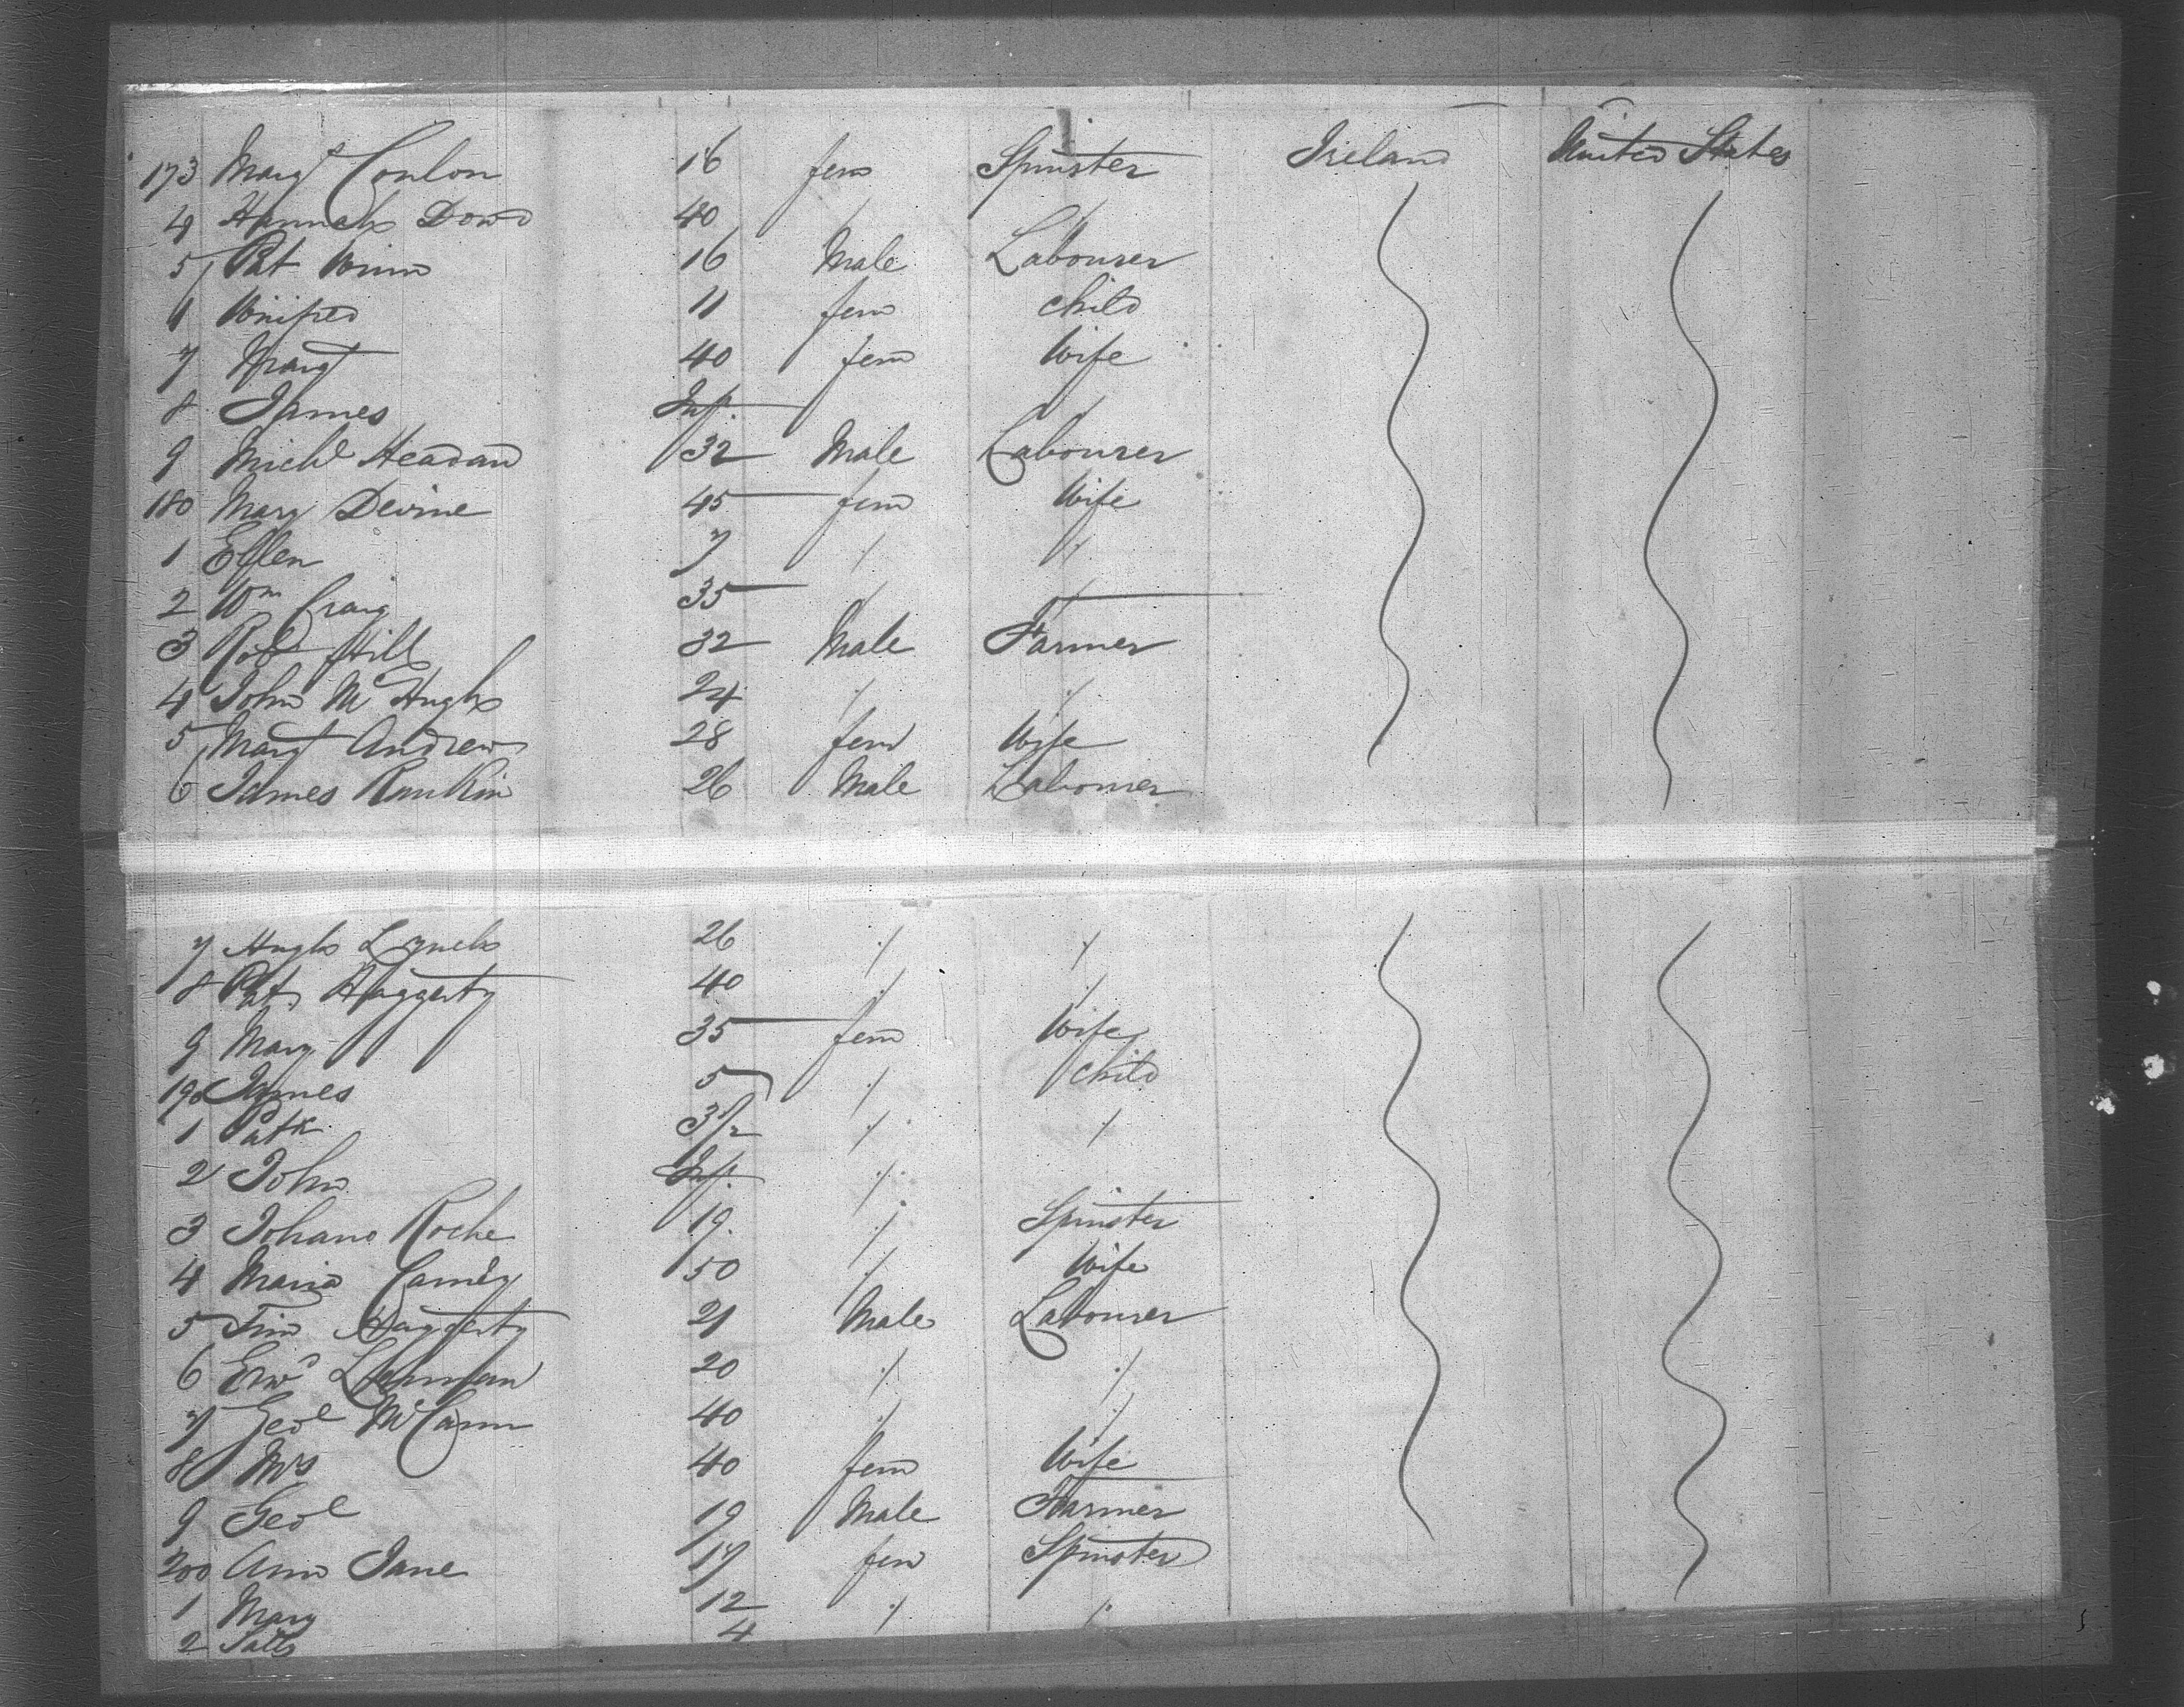 173 Margt Conlon 16 fem Spinster Ireland United States
4 Hannah Dowd 40 " "
5 Pat Winn 16 Male Labourer
6 Winifred 11 fem child
7 Margt 40 fem Wife
8 James Inf. "
9 Michl Headan 32 Male Labourer
180 Mary Devine 45 fem Wife
1 Ellen 7 " "
2 Wm Craig 35 " "
3 Robt Hill 32 Male Farmer
4 John McHugh 24 " "
5 Margt Andrew 28 fem Wife
6 James Rankin 26 Male Labourer
7 Hugh Lynch 26 " "
8 Pat Haggerty 40 " "
9 Mary 35 fem Wife
190 James 5 " child
1 Patk 3 1/2 " "
2 John Inf. "
3 Johana Roche 19 " Spinster
4 Maria Carney 50 " Wife
5 Tim Haggerty 21 Male Labourer
6 Edwd 20 " "
7 Geoe McCann 40 " "
8 Mrs 40 fem Wife
9 Geoe 19 Male Farmer
200 Ann Jane 17 fem Spinster
1 Mary 12 " "
2 4